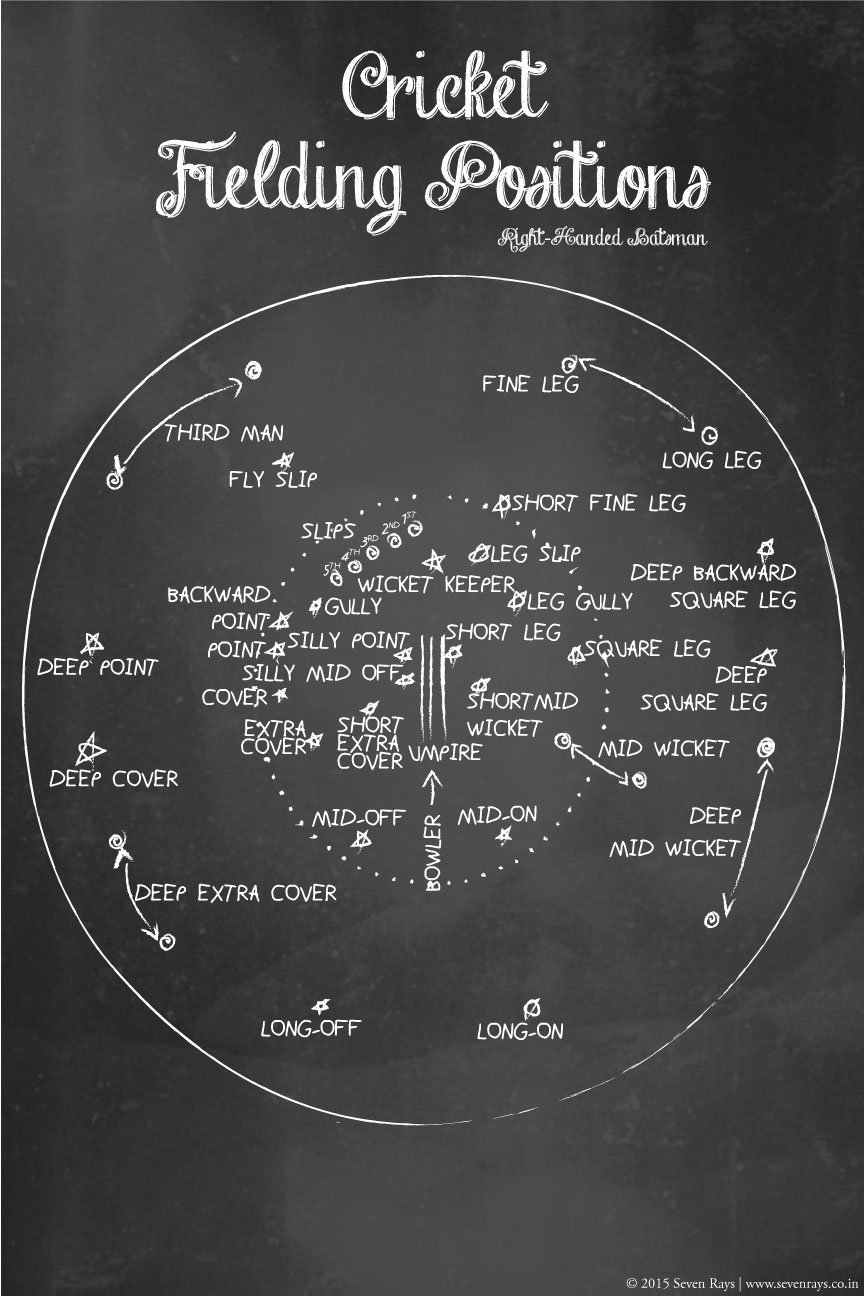 Cricket
Fielding Positions
Right-Handed Batsman
FINE LEG
THIRD MAN
LONG LEG
FLY SLIP
SHORT FINE LEG
SLIPS
1ST
2ND
3RD
4TH
5TH
LEG SLIP
WICKET KEEPER
DEEP BACKWARD
SQUARE LEG
BACKWARD
POINT
GULLY
LEG GULLY
SHORT LEG
SILLY POINT
POINT
SQUARE LEG
DEEP POINT
SILLY MID OFF
DEEP
SQUARE LEG
COVER
SHORT MID
WICKET
EXTRA
COVER
SHORT
EXTRA
COVER
UMPIRE
MID WICKET
DEEP COVER
MID-OFF
MID-ON
DEEP
MID WICKET
BOWLER
DEEP EXTRA COVER
LONG-OFF
LONG-ON
© 2015 Seven Rays | www.sevenrays.co.in